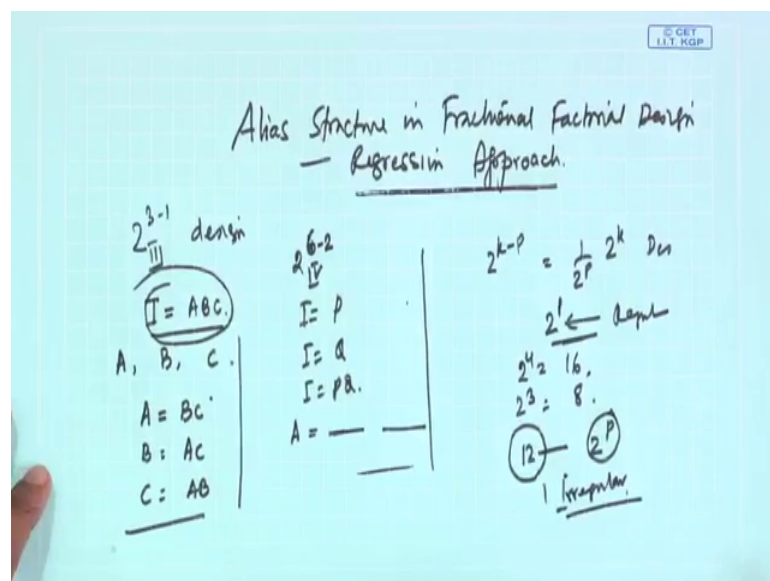 © CET
I.I.T. KGP
Alias Structure in Fractional Factorial Design
— Regression Approach.
2^{3-1}_{III} design
I = ABC.
A, B, C.
A = BC
B = AC
C = AB
2^{6-2}_{IV}
I = P
I = Q
I = PQ.
A = — —
2^{k-p} = 1/2^p 2^k Des
2^1 ←
2^4 = 16,
2^3 = 8.
12 — 2^p
Irregular